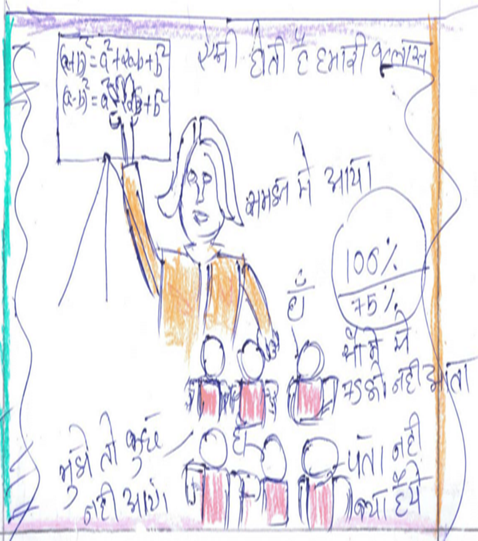 (a+b)²=a²+2ab+b²
(a-b)²= a² 2ab+b²
ऐसी होती है हमारी क्लास
समझ में आया
100%
75%
हाँ
सौ में से
75 को नही आता
मुझे तो कुछ
नही आया
हाँ
पता नही
क्या है ये